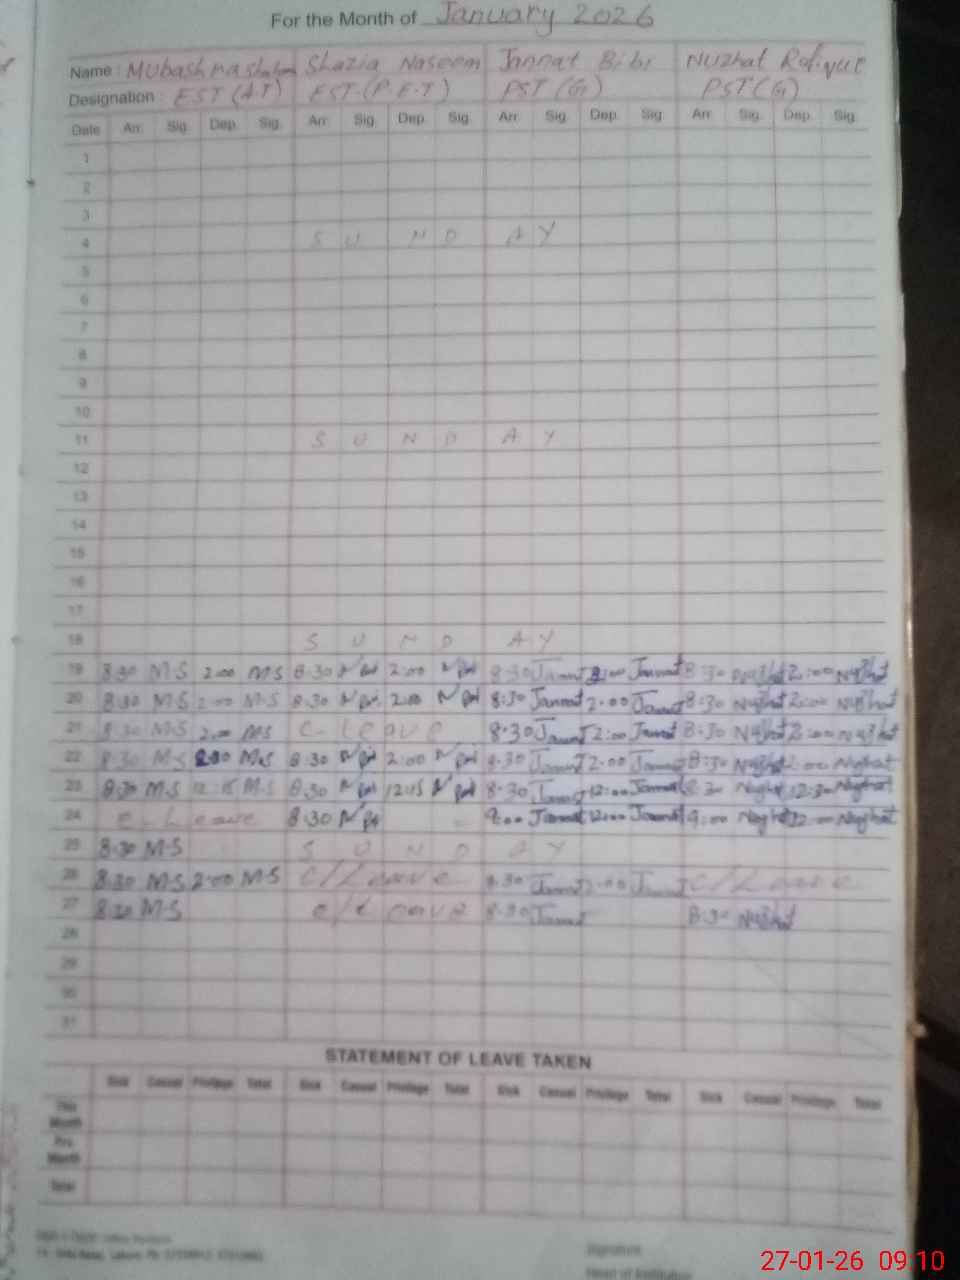 For the Month of January 2026
Name: Mubashra Shaheen Shazia Naseem Jannat Bibi Nuzhat Rafique
Designation EST (A.T) EST.(P.E.T) PST (G) PST (G)
Date Arr. Sig. Dep. Sig. Arr. Sig. Dep. Sig. Arr. Sig. Dep. Sig. Arr. Sig. Dep. Sig.
1
2
3
4 S U N D A Y
5
6
7
8
9
10
11 S U N D A Y
12
13
14
15
16
17
18 S U N D A Y
19 8:30 M-S 2:00 M-S 8:30 2:00 8:30 Jannat 2:00 Jannat 8:30 Nuzhat 2:00 Nuzhat
20 8:30 M-S 2:00 M-S 8:30 2:00 8:30 Jannat 2:00 Jannat 8:30 Nuzhat 2:00 Nuzhat
21 8:30 M-S 2:00 M-S C-Leave 8:30 Jannat 2:00 Jannat 8:30 Nuzhat 2:00 Nuzhat
22 8:30 M-S 2:00 M-S 8:30 2:00 8:30 Jannat 2:00 Jannat 8:30 Nuzhat 2:00 Nuzhat
23 8:30 M-S 12:15 M-S 8:30 12:15 8:30 Jannat 12:00 Jannat 8:30 Nuzhat 12:30 Nuzhat
24 C-Leave 8:30 9:00 Jannat 12:00 Jannat 9:00 Nuzhat 12:00 Nuzhat
25 8:30 M-S S U N D A Y
26 8:30 M-S 2:00 M-S C/Leave 8:30 Jannat 2:00 Jannat C/Leave
27 8:30 M-S C/Leave 8:30 Jannat 8:30 Nuzhat
28
29
30
31
STATEMENT OF LEAVE TAKEN
Sick Casual Privilege Total Sick Casual Privilege Total Sick Casual Privilege Total Sick Casual Privilege Total
This Month
Pre. Month
Total
Signature
Head of Institution
27-01-26 09:10